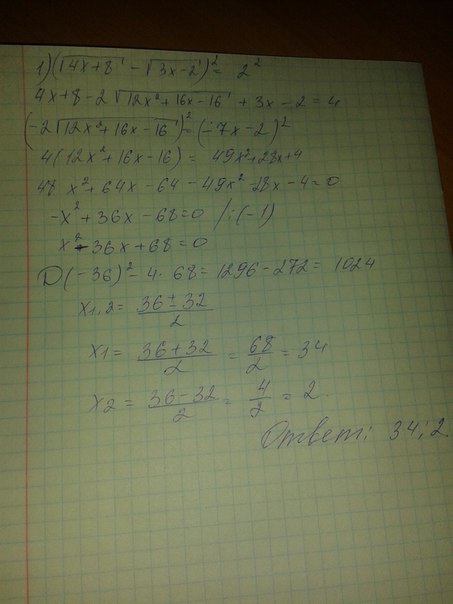 1) (√4x+8 - √3x-2)² = 2²
4x+8-2 √12x²+16x-16 + 3x-2=4
(-2√12x²+16x-16)² = (-7x-2)²
4(12x²+16x-16) = 49x²+28x+4
48 x²+64x-64-49x²-28x-4=0
-x²+36x-68=0 /:(-1)
x²-36x+68=0
D(-36)²-4·68=1296-272=1024
x1,2= 36±32/2
x1= 36+32/2 = 68/2 = 34
x2 = 36-32/2 = 4/2 = 2.
Ответ: 34; 2